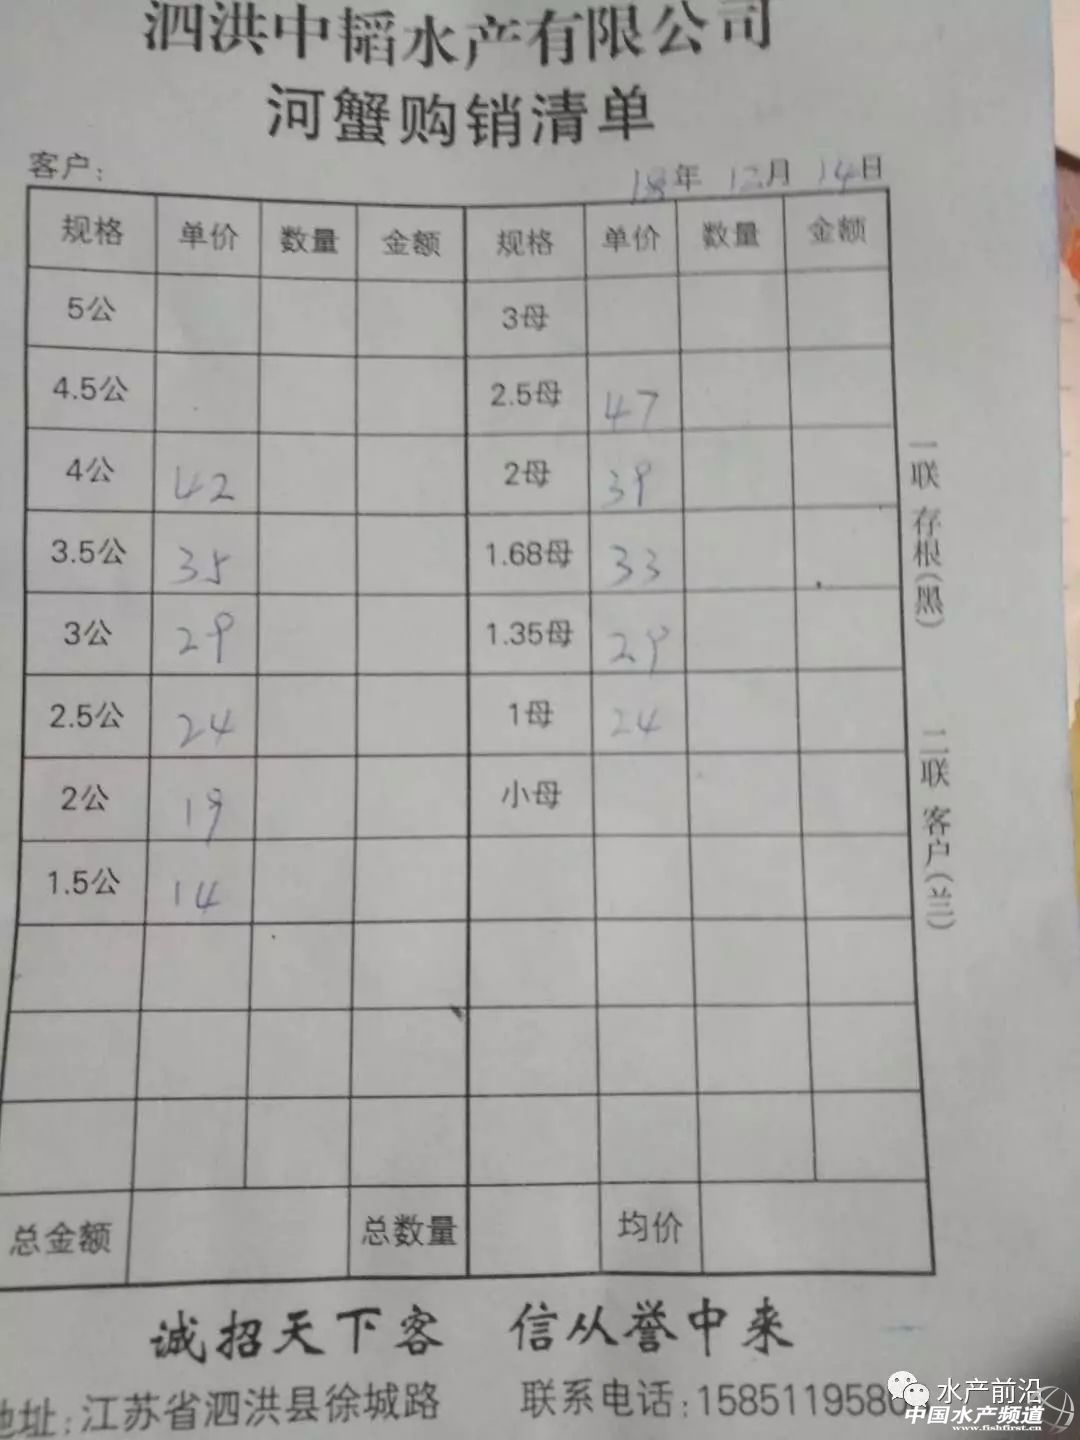 泗洪中韬水产有限公司
河蟹购销清单
客户: 18年 12月 14日
规格 单价 数量 金额 规格 单价 数量 金额
5公 3母
4.5公 2.5母 47
4公 42 2母 39
3.5公 35 1.68母 33
3公 29 1.35母 29
2.5公 24 1母 24
2公 19 小母
1.5公 14
总金额 总数量 均价
一联 存根(黑)
二联 客户(兰)
诚招天下客 信从誉中来
地址:江苏省泗洪县徐城路 联系电话:1585119580
水产前沿
中国水产频道
www.fishfirst.cn